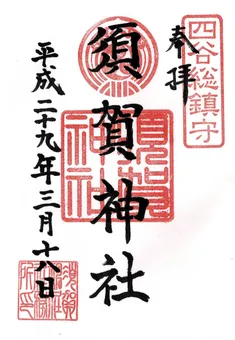 四谷総鎮守
奉拝
須賀神社
平成二十九年三月十八日